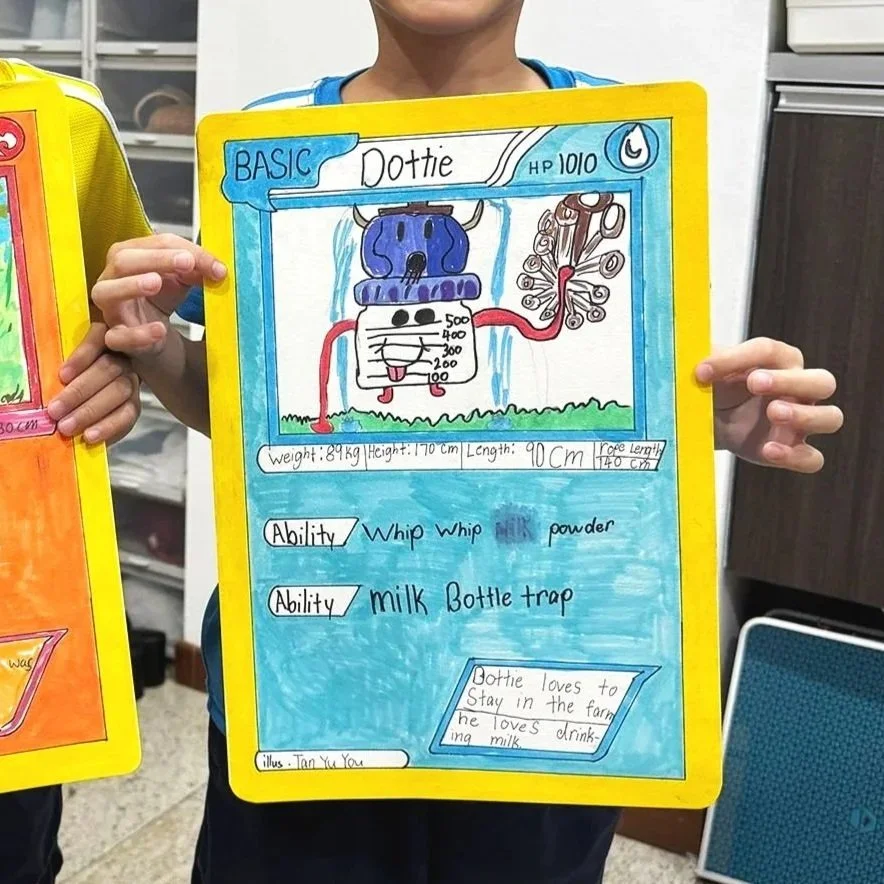 BASIC Dottie HP 1010
500
400
300
200
100
Weight: 89kg Height: 170 cm Length: 90 cm rope Length 140 cm
Ability Whip Whip milk powder
Ability milk Bottle trap
Dottie loves to
Stay in the farm
he loves drink-
ing milk.
illus. Tan Yu You
30cm
was